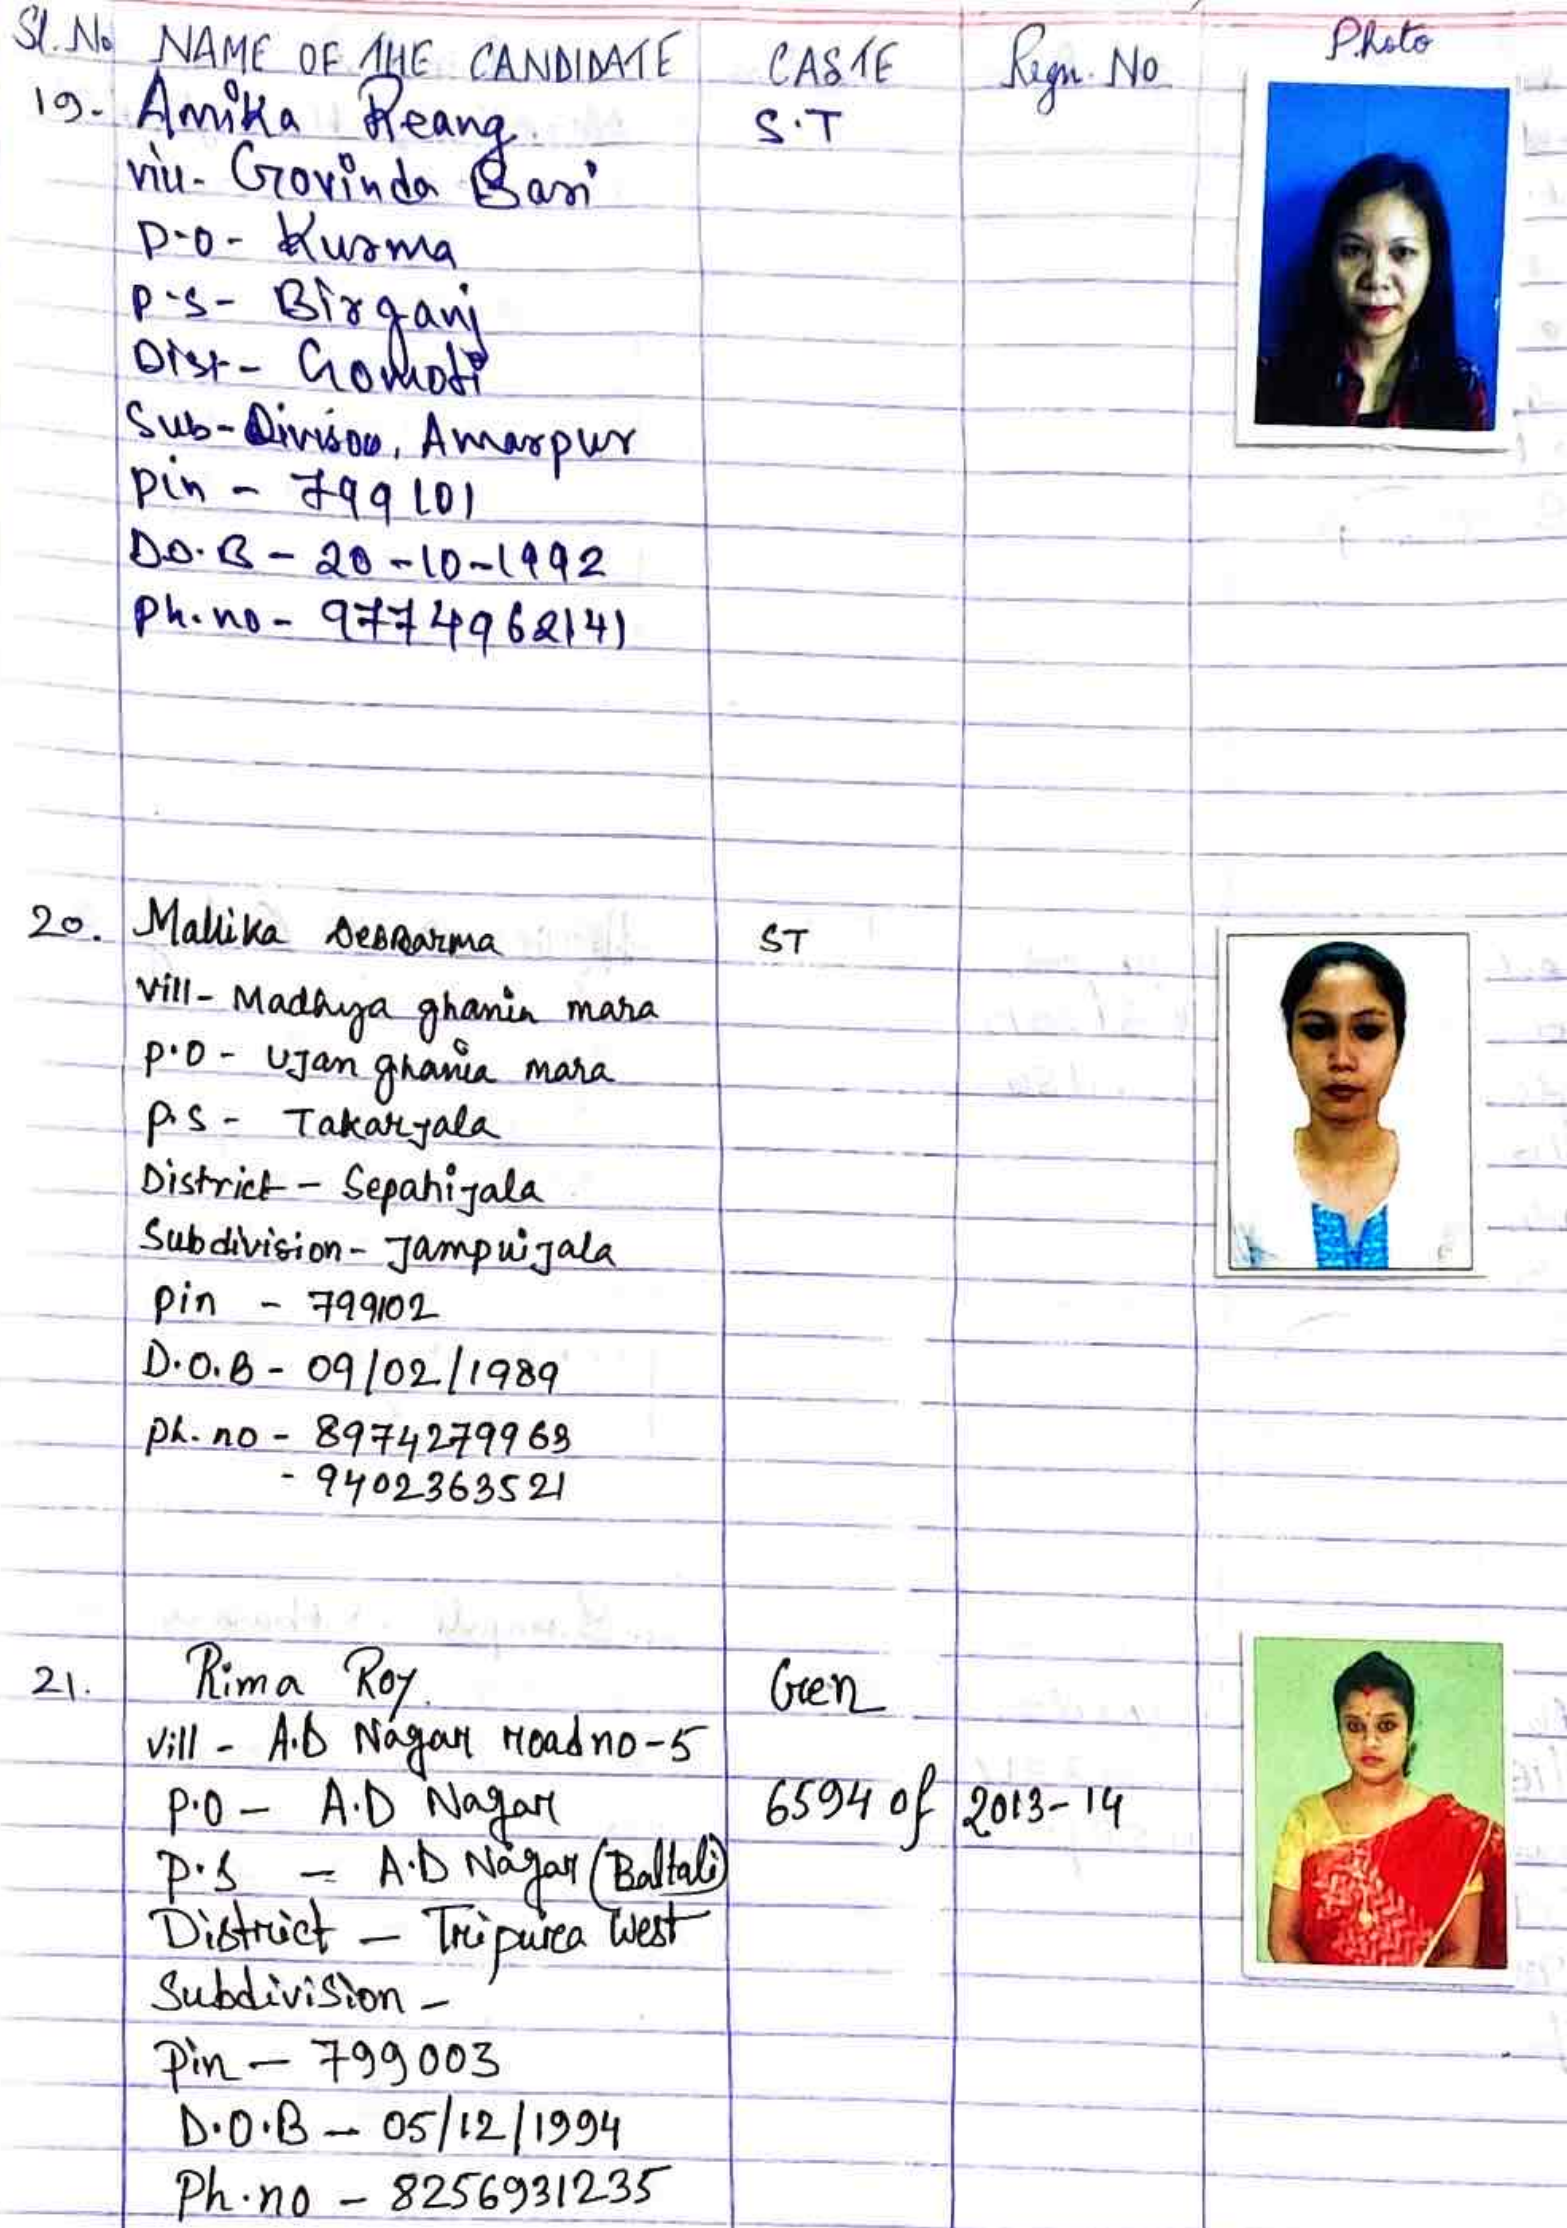 Sl. No NAME OF THE CANDIDATE CASTE Regn. No Photo
19. Amika Reang S.T
vill- Govinda Bari
P-O- Kurma
P-S- Birganj
Dist- Gomoti
Sub-Divison, Amarpur
Pin - 799101
D.O.B - 20-10-1992
Ph.no- 9774962141
20. Mallika DebBarma ST
Vill- Madhya ghania mara
P.O - Ujan ghania mara
P.S - Takarjala
District - Sepahijala
Subdivision - Jampuijala
Pin - 799102
D.O.B - 09/02/1989
Ph. no - 8974279963
- 9402363521
21. Rima Roy. Gen
Vill - A.D Nagar Road no-5
P.O - A.D Nagar 6594 of 2013-14
P.S - A.D Nagar (Baltali)
District - Tripura West
Subdivision -
Pin - 799003
D.O.B - 05/12/1994
Ph.no - 8256931235